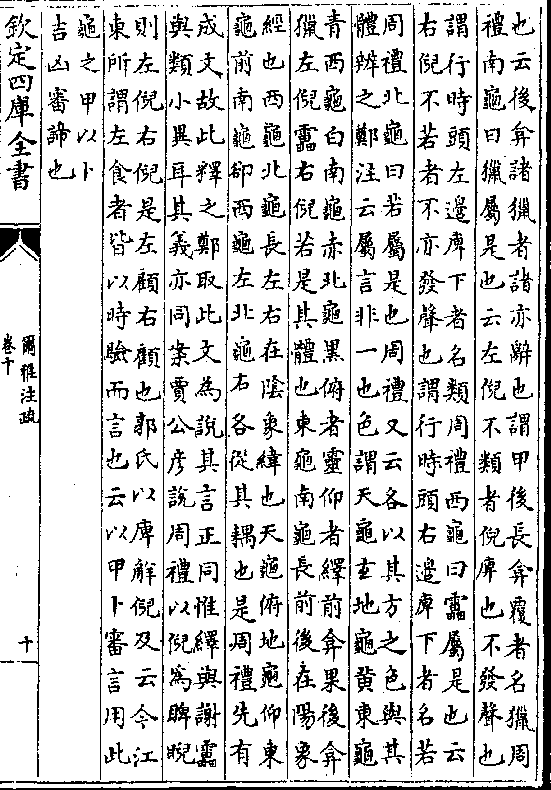 也云後弇諸獵者諸亦辭也謂甲後長弇覆者名獵周
禮南龜曰獵屬是也云左倪不類者倪庳也不發聲也
謂行時頭左邉庳下者名類周禮西龜曰靁屬是也云
右倪不若者不亦發聲也謂行時頭右邉庳下者名若
周禮北龜曰若屬是也周禮又云各以其方之色與其
體辨之鄭注云屬言非一也色謂天龜玄地龜黄東龜
青西龜白南龜赤北龜黑俯者靈仰者繹前弇果後弇
獵左倪靁右倪若是其體也東龜南龜長前後在陽象
經也西龜北龜長左右在陰象緯也天龜俯地龜仰東
龜前南龜卻西龜左北龜右各從其耦也是周禮先有
成文故此釋之鄭取此文為說其言正同惟繹與謝靁
與類小異耳其義亦同案賈公彦說周禮以倪為睥睨
則左倪右倪是左顧右顧也郭氏以庳解倪及云今江
東所謂左食者皆以時驗而言也云以甲卜審言用此
龜之甲以卜
吉凶審諦也
欽定四庫全書
爾雅注疏
卷十
十